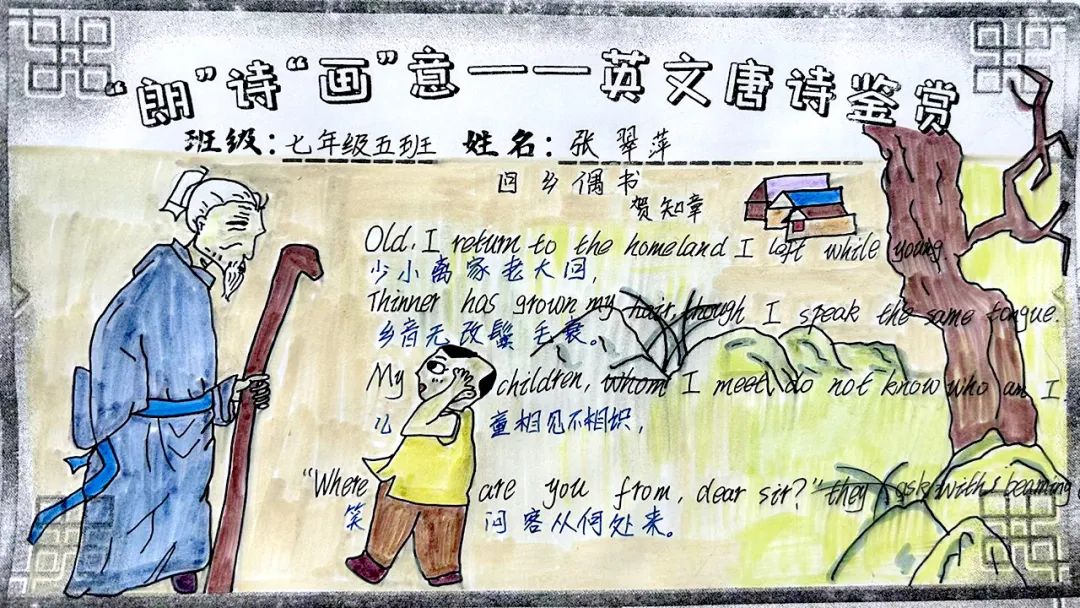 “朗”诗“画”意——英文唐诗鉴赏
班级：七年级五班 姓名：张翠萍
回乡偶书
贺知章
Old, I return to the homeland I left while young.
少小离家老大回，
Thinner has grown my hair, though I speak the same tongue.
乡音无改鬓毛衰。
My children, whom I meet, do not know who am I
儿童相见不相识，
“Where are you from, dear sir?” they ask with beaming
笑问客从何处来。